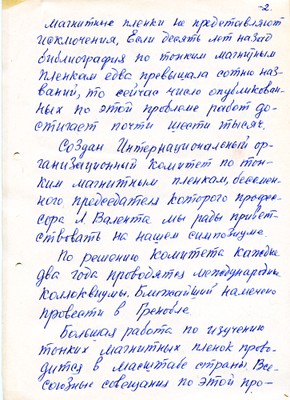 -2-
Магнитные пленки не представляют
исключения. Если десять лет назад
библиография по тонким магнитным
пленкам едва превышала сотню наз-
ваний, то сейчас число опубликован-
ных по этой проблеме работ до-
стигает почти шести тысяч.
Создан Интернациональный ор-
ганизационный Комитет по тон-
ким магнитным пленкам, бессмен-
ного председателя которого профес-
сора Л. Валента мы рады привет-
ствовать на нашем симпозиуме.
По решению Комитета каждые
два года проводятся международные
Коллоквиумы. Ближайший намечено
провести в Гренобле.
Большая работа по изучению
тонких магнитных пленок прово-
дится в масштабе страны. Все-
союзные совещания по этой про-